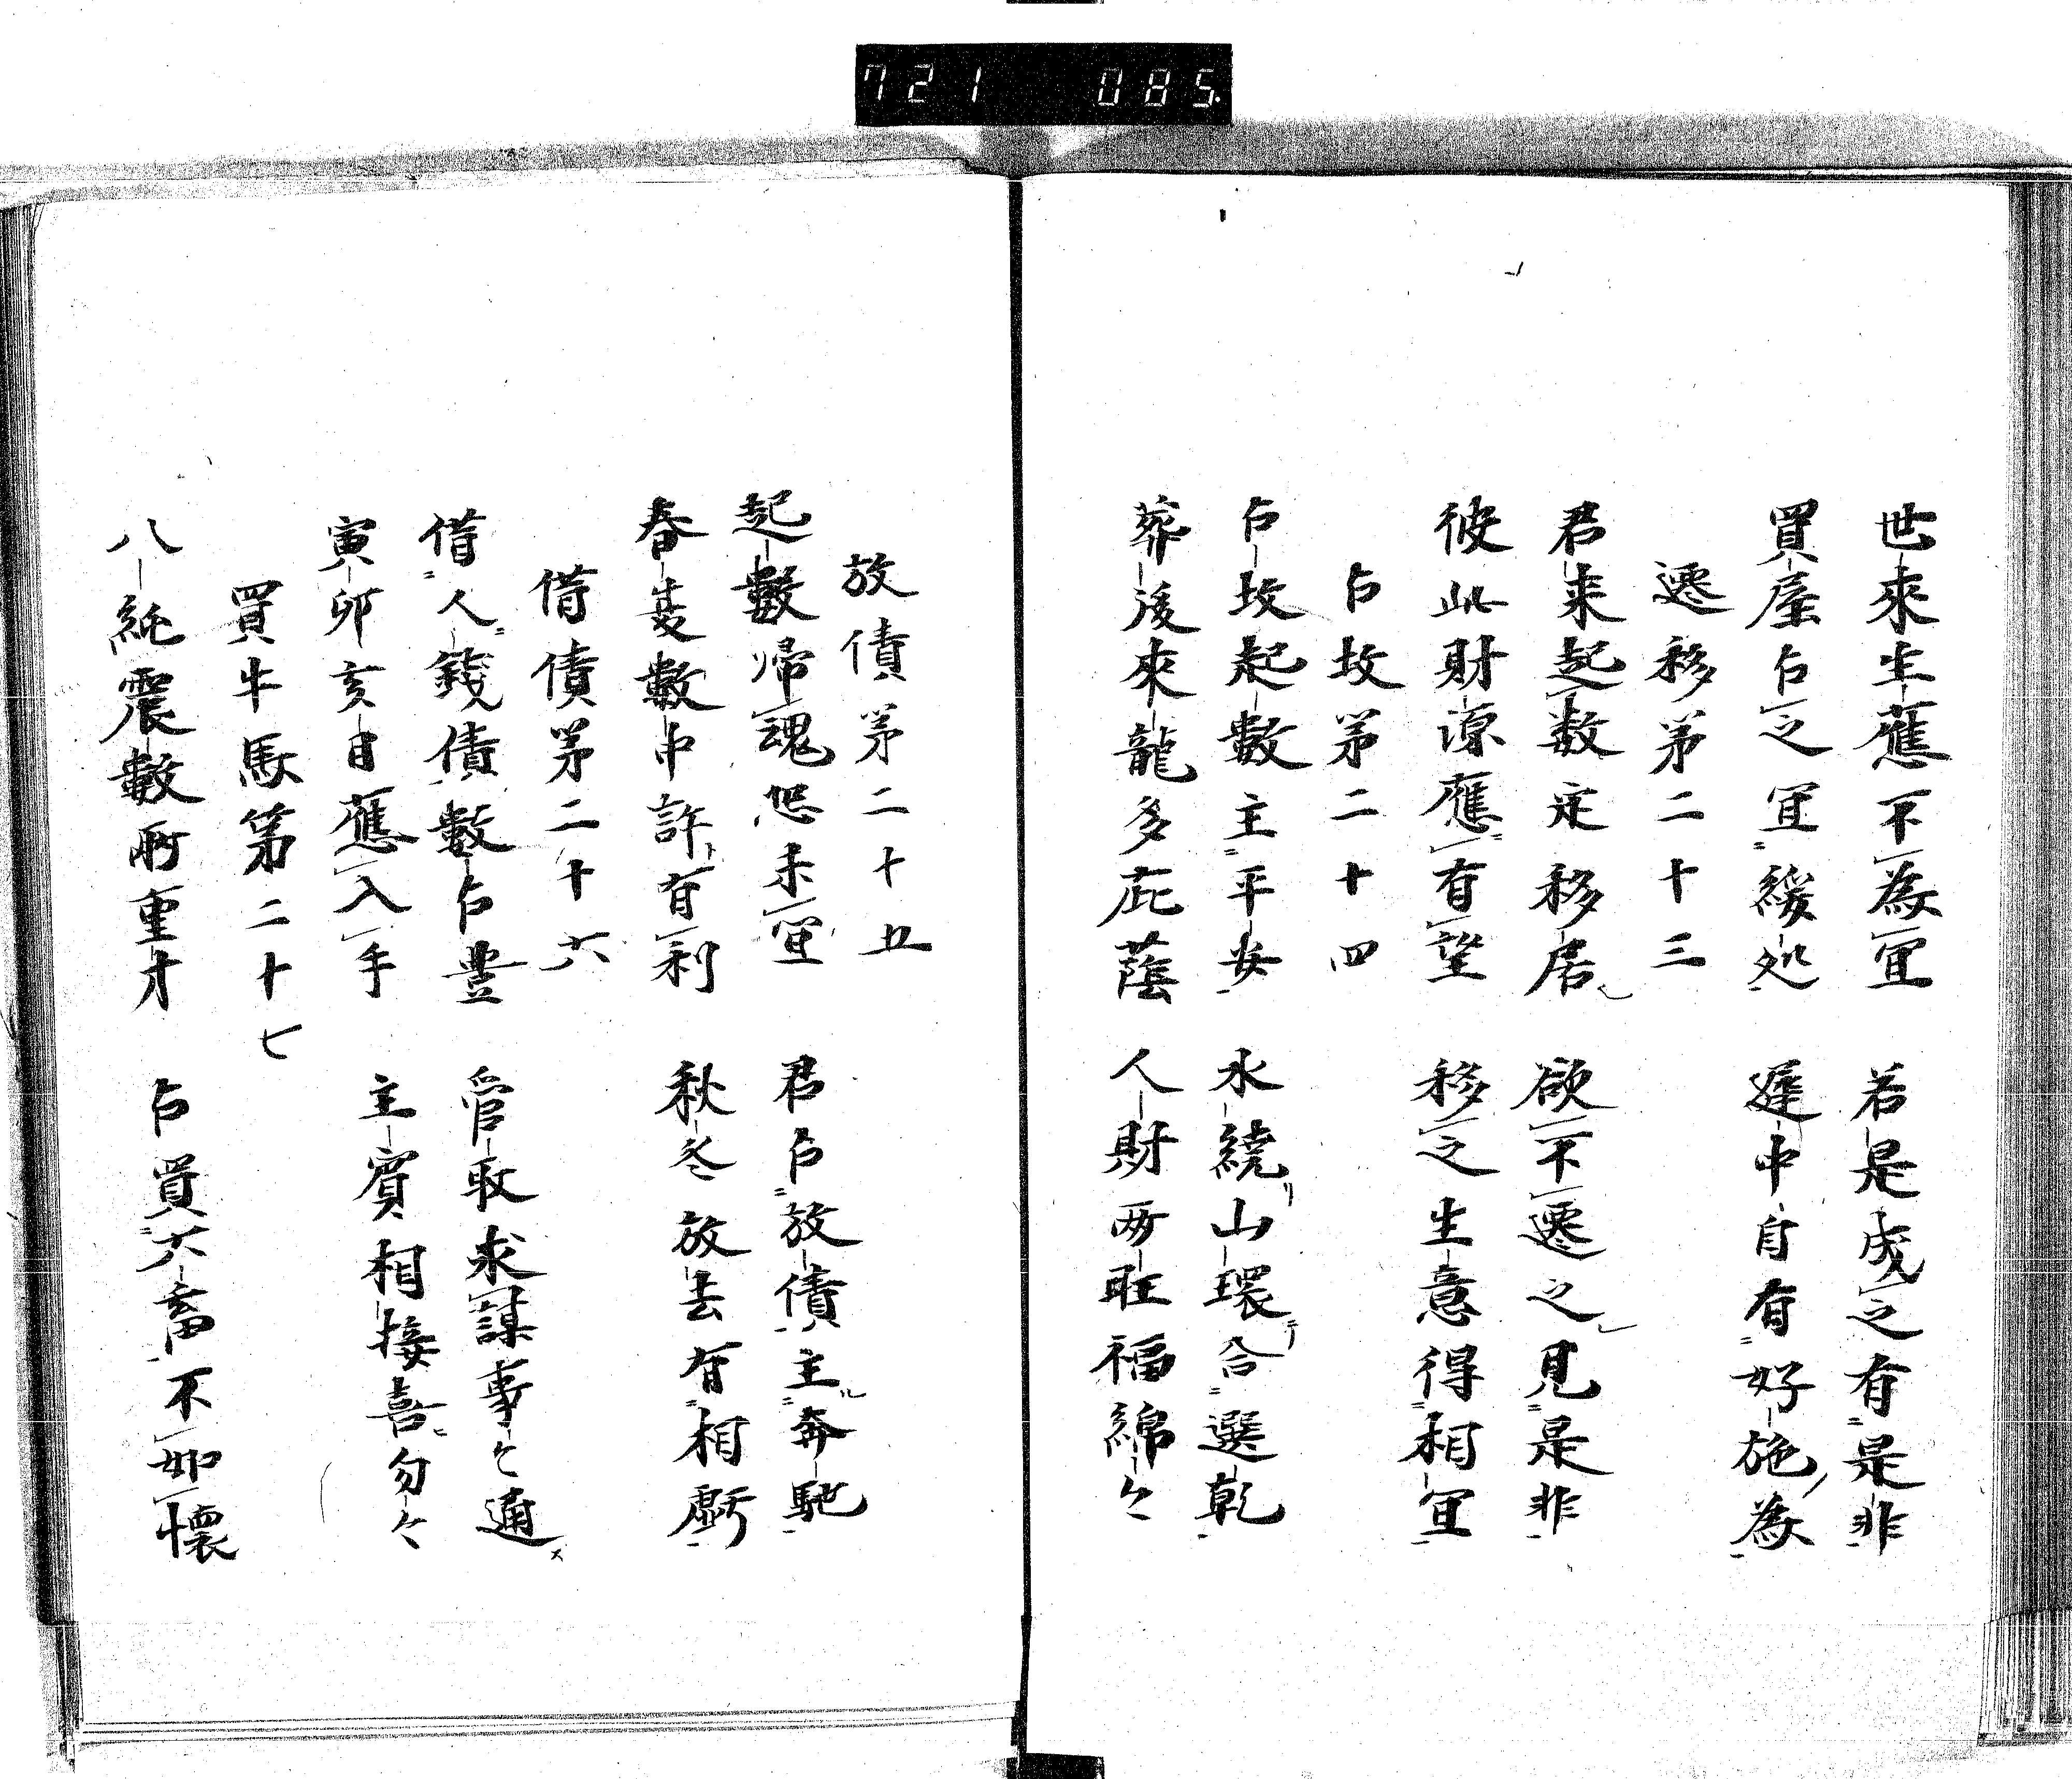 721 085
世來生應不為宜 若是成之有是非
買屋占之宜緩処 遲中自有好施為
遷移第二十三
君来起数定移居 欲不遷之見是非
彼此財源應有望 移之生意得相宜
占坟第二十四
占坟起數主平安 水繞山環合選乾
葬後來龍多庇蔭 人財两旺福綿々
放債第二十五
起數帰魂恐未宜 君占放債主奔馳
春夏數中許有利 秋冬放去有相虧
借債第二十六
借人錢債數占豊 管取求謀事々通
寅卯亥日應入手 主賓相接喜匆々
買牛馬第二十七
八純震數所重才 占買六畜不如懷